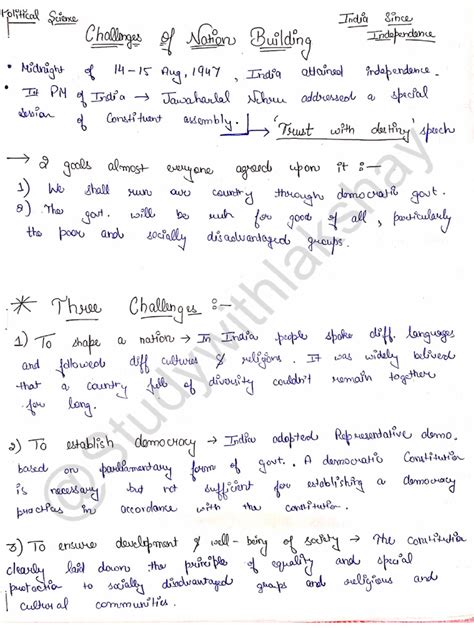 Political Science
India Since
Independence
Challenges of Nation Building
• Midnight of 14-15 Aug, 1947, India attained independence.
• Ist PM of India → Jawaharlal Nehru addressed a special
session of Constituent assembly. → 'Trust with destiny' speech
→ 2 goals almost everyone agreed upon it :-
1) We shall run our country through democratic govt.
2) The govt. will be run for good of all, particularly
the poor and socially disadvantaged groups.
* Three Challenges :-
1) To shape a nation → In India people spoke diff. languages
and followed diff cultures & religions. It was widely belived
that a country full of diversity couldn't remain together
for long.
2) To establish democracy → India adopted Representative demo.
based on parliamentary form of govt.. A democratic Constitution
is necessary but not sufficient for establishing a democracy
practices in accordance with the constitution.
3) To ensure development & well-being of society → The constitution
clearly laid down the principle of equality and special
protection to socially disadvantaged groups and religious and
cultural communities.
@Studywithlakshay